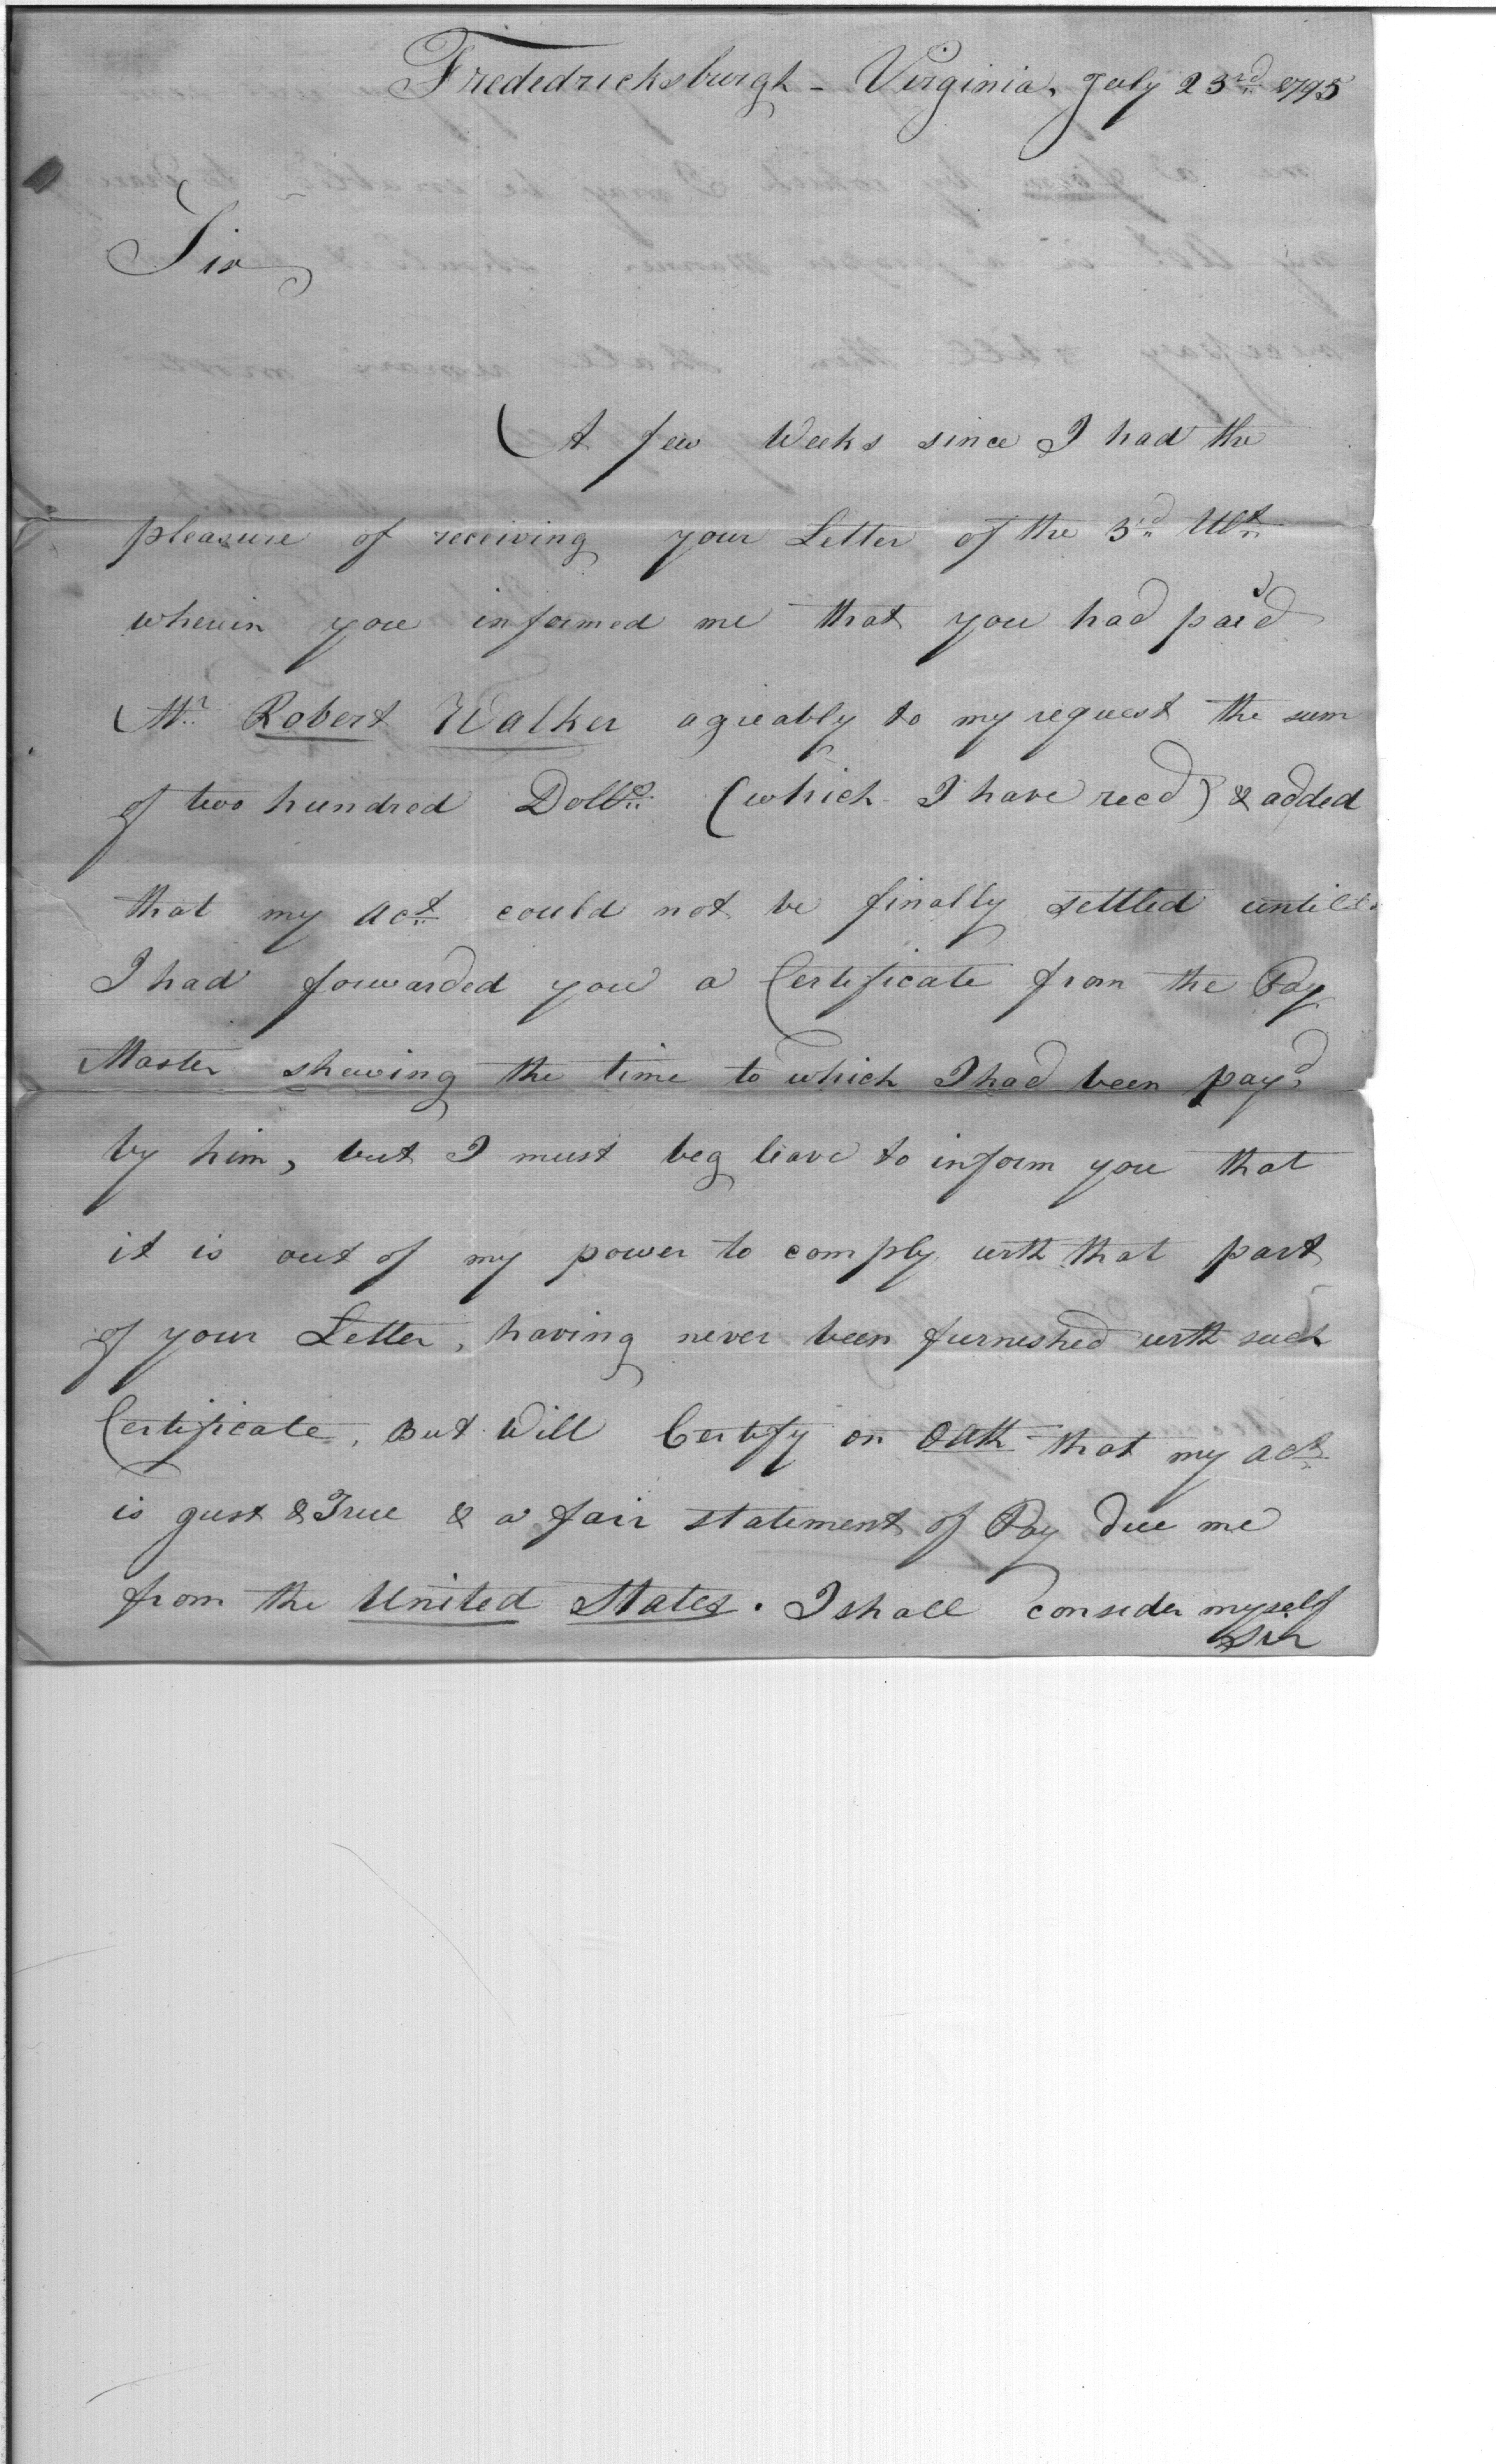 Frededricksburgh - Virginia, July 23rd 1795
Sir
A few Weeks since I had the
pleasure of receiving your Letter of the 3d Ult
wherein you informed me that you had paid
Mr Robert Walker agreably to my request the sum
of two hundred Dolls (which I have recd) & added
that my Act could not be finally settled untill
I had forwarded you a Certificate from the Pay
Master shewing the time to which I had been payd
by him, but I must beg leave to inform you that
it is out of my power to comply with that part
of your Letter, having never been furnished with such
Certificate, But Will Certify on Oath that my act
is just & True & a fair statement of Pay due me
from the United States. I shall consider myself
Sir